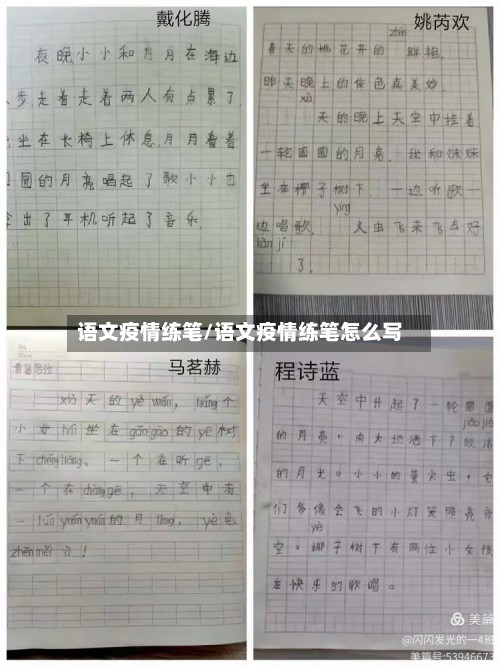 戴化腾
夜晚小小和月月在海边
步,走着走着两人有点累了
坐在长椅上休息,月月看着
圆的月亮唱起了歌小小也
出了手机听起了音乐。
姚芮欢
zhǐn
春天的桃花开的 鲜艳。
昨天晚上的夜色真美妙。
xià
天的晚上天空中挂着
一轮圆圆的月亮,我和妹妹
坐在椰子树下,一边听歌一
边唱歌。
yíng
火虫飞来飞去好
kàn jí
了。
语文疫情练笔/语文疫情练笔怎么写
马茗赫
看图写话
xià天的yè wǎn,liǎng个
小女hái坐在gāo gāo的yē树
下chéng liáng。一个在听gē,
一个在chàng gē,天空中有
一lún yuán yuán的月liang,yè色
zhēn měi 了!
程诗蓝
天空中升起了一轮
jiǎo jié
的月亮,向大地洒下了皎洁
的月光。小小的萤火虫,它
们多像会飞的小灯笼照亮
yē
空。椰子树下有两位小女孩
在快乐的歌唱。
美篇
@闪闪发光的一4班
美篇号:53946673